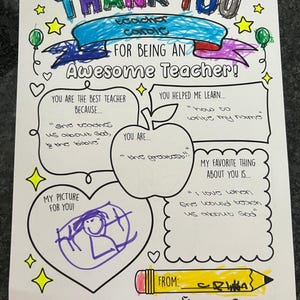 THANK YOU
teacher
carole
FOR BEING AN
Awesome Teacher!
YOU ARE THE BEST TEACHER
BECAUSE...
"she teaches
us about God,
& the bible"
YOU HELPED ME LEARN...
"how to
write my name"
YOU ARE...
"the greatest"
MY FAVORITE THING
ABOUT YOU IS...
"I love when
she would teach
us about God"
MY PICTURE
FOR YOU!
FROM: